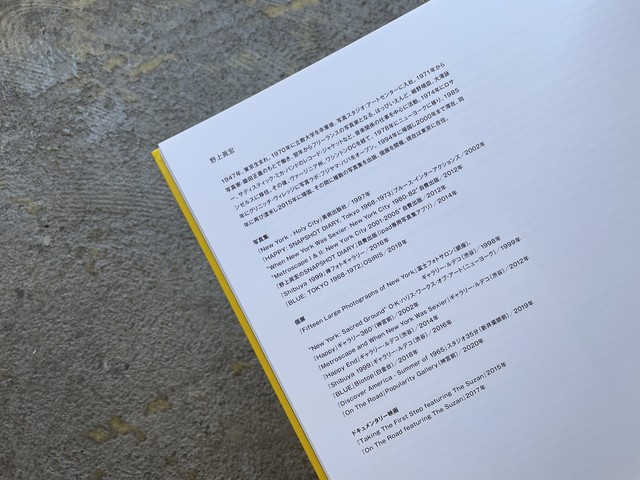 野上眞宏
1947年、東京生まれ。1970年に立教大学を卒業後、写真スタジオ「アートセンター」に入社。1971年から
写真家・鋤田正義のもとで働き、翌年からフリーランスの写真家となる。はっぴいえんど、細野晴臣、大滝詠
一、サディスティック・ミカ・バンドのレコード・ジャケットなど、音楽関係の仕事を中心に活動。1974年にロサ
ンゼルスに移住。その後、ヴァージニア州、ワシントンDCを経て、1978年にニューヨークに移り、1985
年にグリニッチ・ヴィレッジに写真ラボ「フジヤマ・パパ」をオープン。1994年に帰国し2000年まで滞在。同
年に再び渡米し2015年に帰国。その間に複数の写真集を出版、個展を開催。現在は東京に在住。
写真集
「New York - Holy City」美術出版社/1997年
「HAPPY: SNAPSHOT DIARY, Tokyo 1968-1973」ブルース・インターアクションズ/2002年
"When New York Was Sexier: New York City 1980-82" 自費出版/2012年
"Metroscape I & II: New York City 2001-2005" 自費出版/2012年
「野上眞宏のSNAPSHOT DIARY」自費出版(ipad専用写真集アプリ)/2014年
「Shibuya 1999」禅フォトギャラリー/2016年
「BLUE: TOKYO 1968-1972」OSIRIS/2018年
個展
「Fifteen Large Photographs of New York」富士フォトサロン(銀座)、
ギャラリー・ルデコ(渋谷)/1998年
"New York: Sacred Ground" O・K・ハリス・ワークス・オブ・アート(ニューヨーク)/1999年
「Happy」ギャラリー360°(神宮前)/2002年
「Metroscape and When New York Was Sexier」ギャラリー・ルデコ(渋谷)/2012年
「Happy End」ギャラリー・ルデコ(渋谷)/2014年
「Shibuya 1999」ギャラリー・ルデコ(渋谷)/2016年
「BLUE」Biotop(白金台)/2018年
「Discover America - Summer of 1965」スタジオ35分(新井薬師前)/2019年
「On The Road」Popularity Gallery(神宮前)/2020年
ドキュメンタリー映画
「Taking The First Step featuring The Suzan」2015年
「On The Road featuring The Suzan」2017年